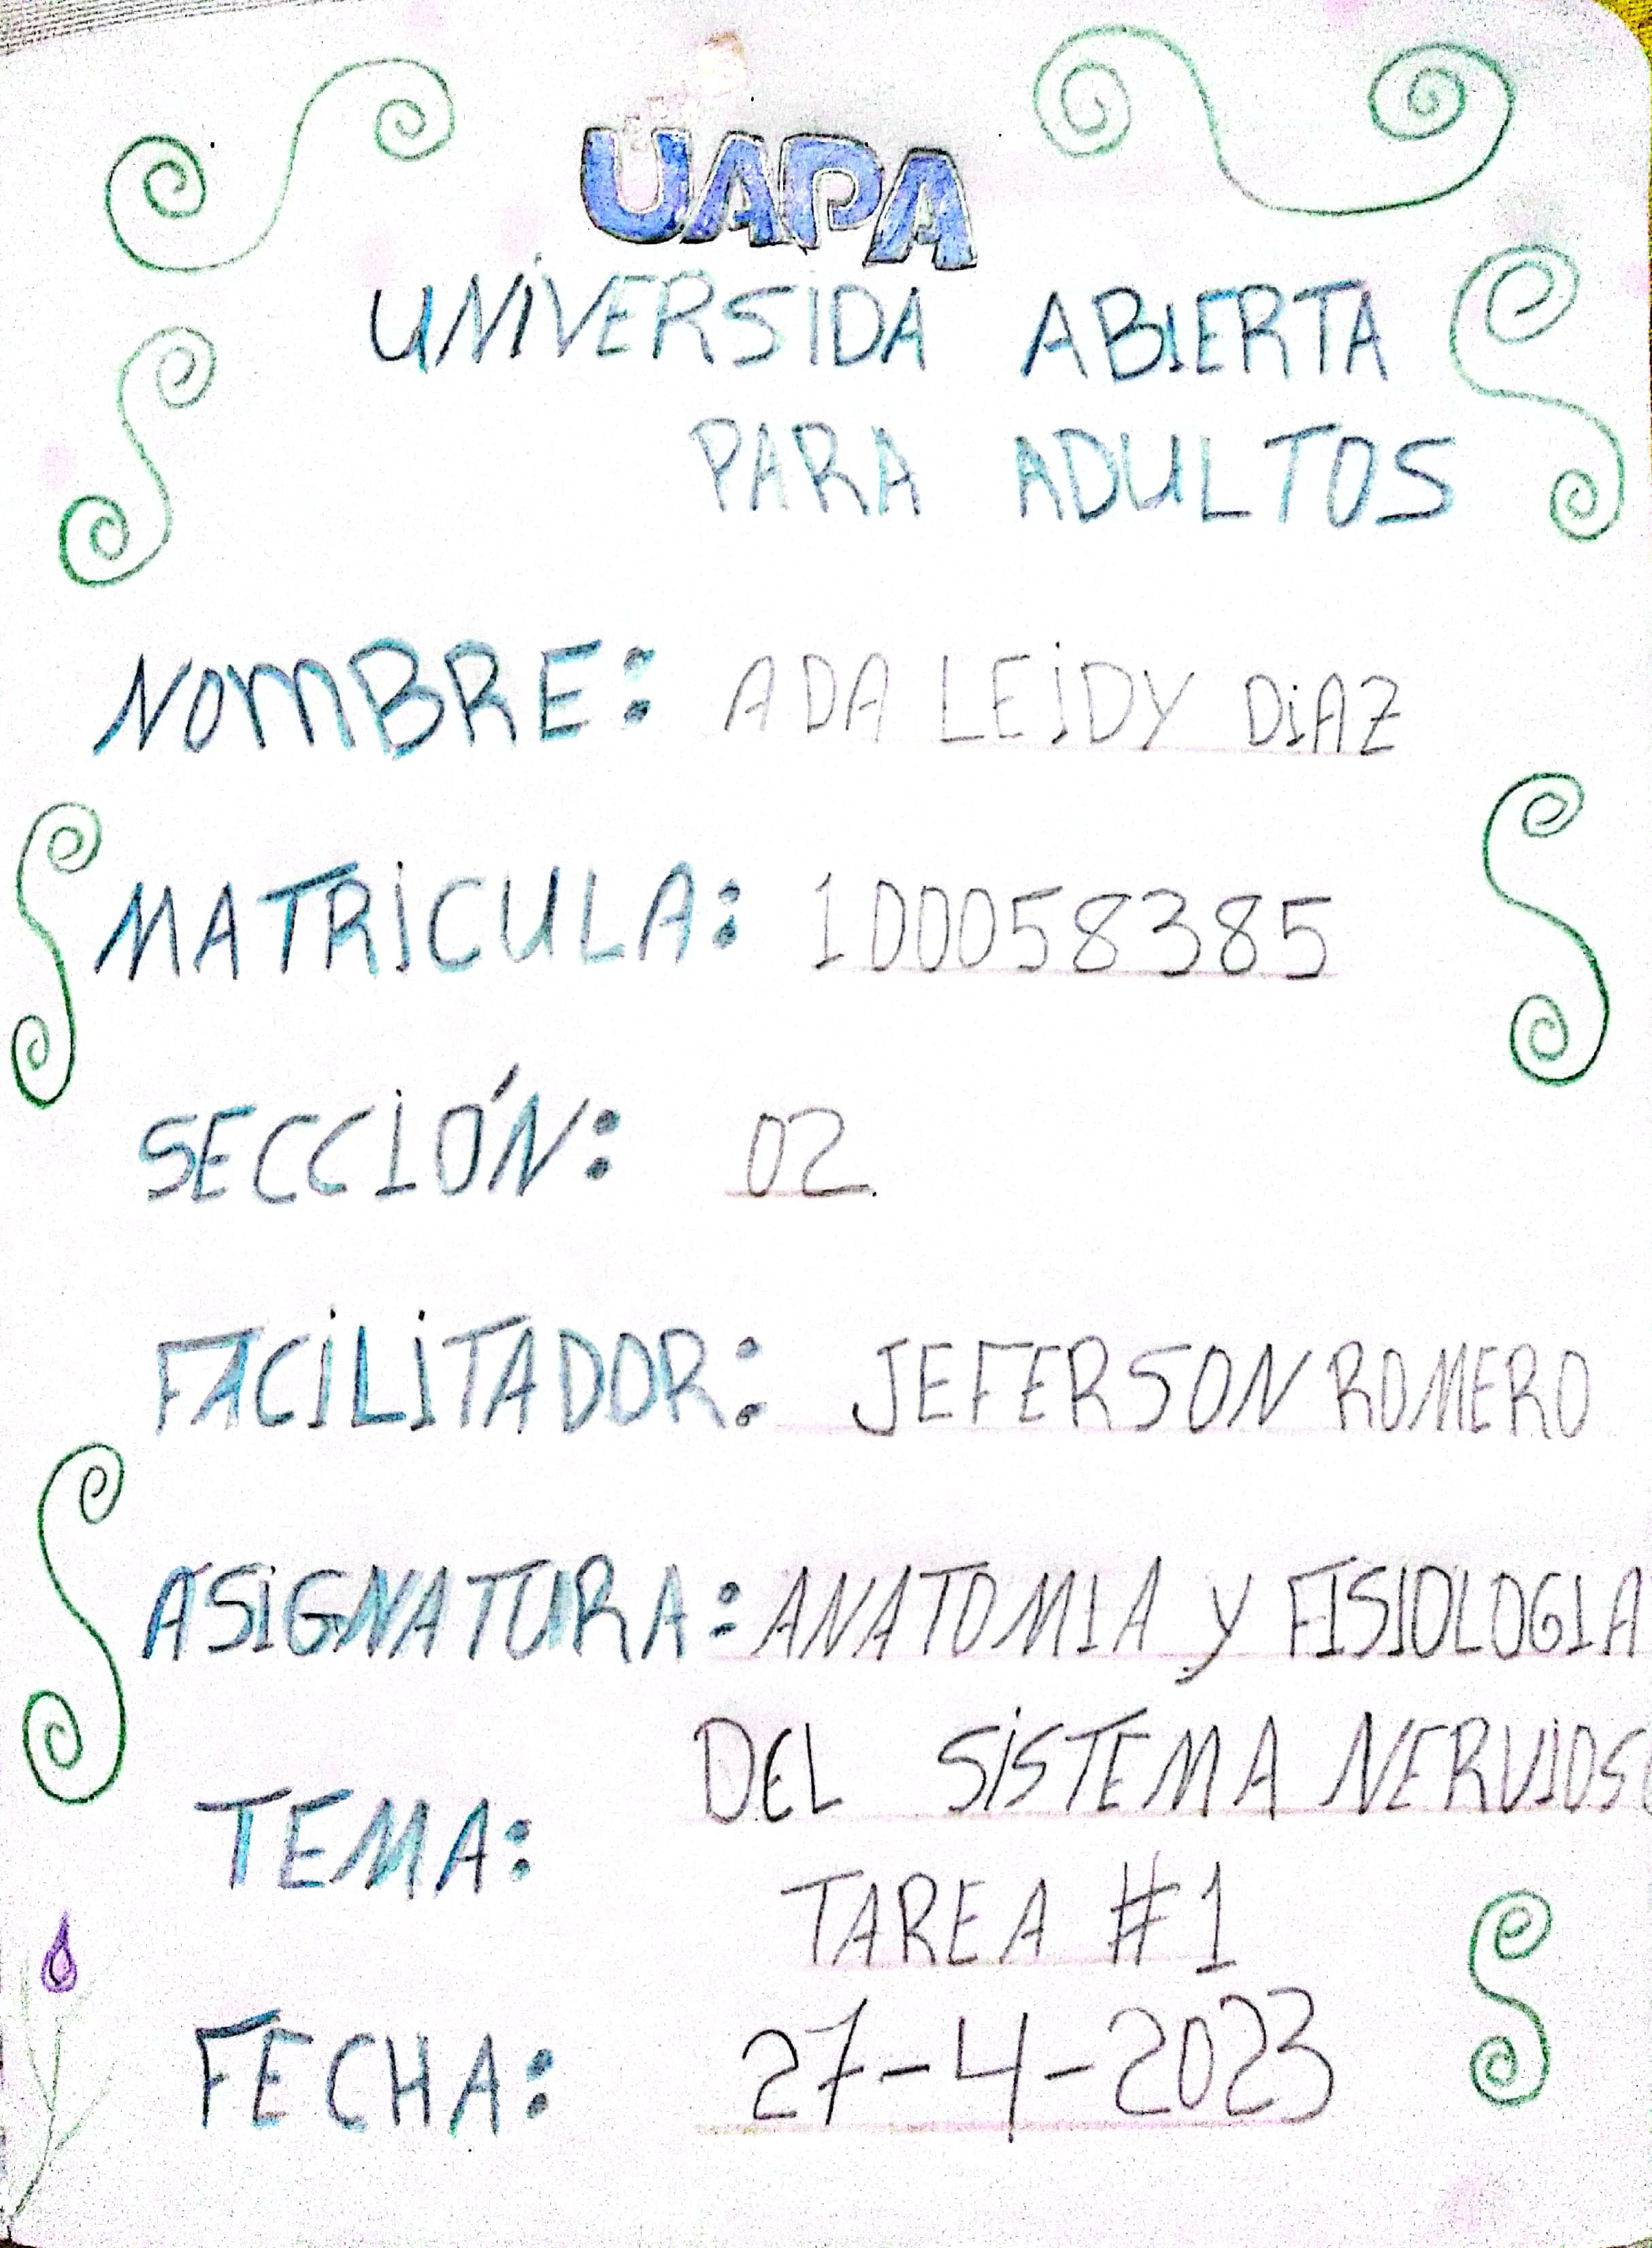 UAPA
UNIVERSIDA ABIERTA
PARA ADULTOS
NOMBRE: ADA LEIDY DIAZ
MATRICULA: 100058385
SECCIÓN: 02
FACILITADOR: JEFERSON ROMERO
ASIGNATURA: ANATOMIA y FISIOLOGIA
DEL SISTEMA NERVIOSO
TEMA:
TAREA #1
FECHA: 27-4-2023